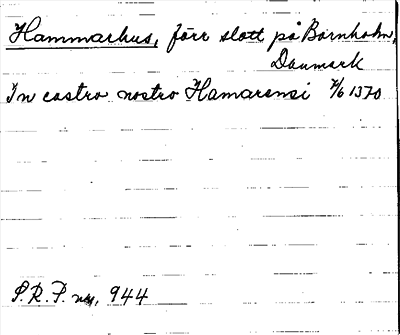 Hammarhus, förr slott på Bornholm,
Danmark
In castro nostro Hamarensi 7/6 1370
S.R.P. nr, 944